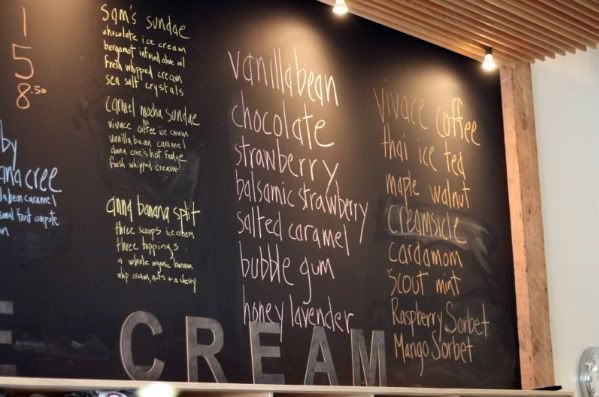 1
5
8.50
by
ana cree
la bean caramel
sonal fruit compote
sam's sundae
chocolate ice cream
bergamot infused olive oil
fresh whipped cream
sea salt crystals
caramel mocha sundae
vivace coffee ice cream
vanilla bean caramel
dana cree's hot fudge
fresh whipped cream
anna banana split
three scoops ice cream
three toppings
a whole organic banana
whip cream, nuts + a cherry
vanilla bean
chocolate
strawberry
balsamic strawberry
salted caramel
bubble gum
honey lavender
vivace coffee
thai ice tea
maple walnut
creamsicle
cardamom
scout mint
Raspberry Sorbet
Mango Sorbet
E CREAM